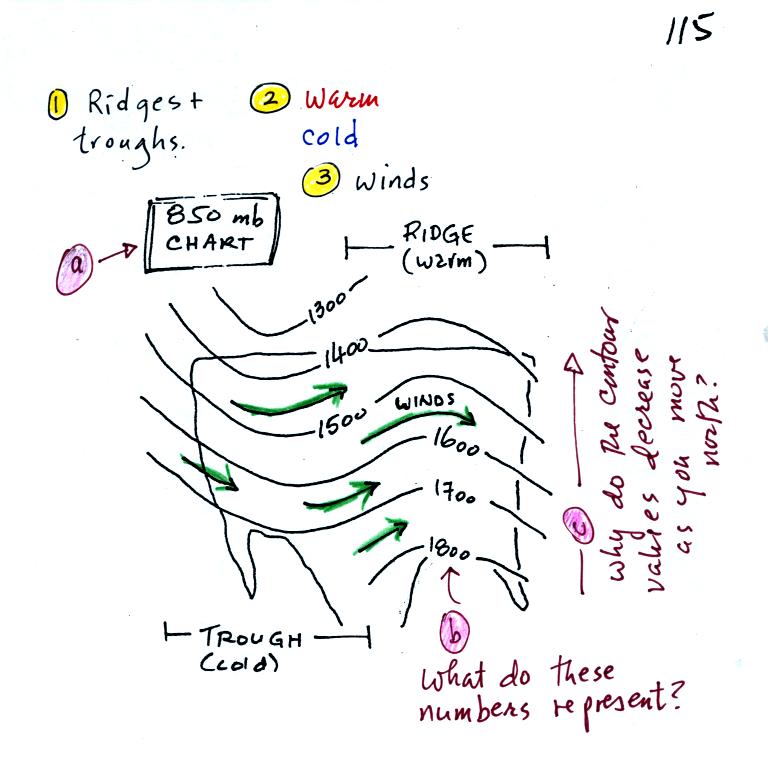 115
1 Ridges +
troughs.
2 warm
cold
3 winds
850 mb
CHART
a
RIDGE
(warm)
1300
1400
1500
WINDS
1600
1700
1800
TROUGH
(cold)
b
What do these
numbers represent?
c
why do the contour
values decrease
as you move
north?